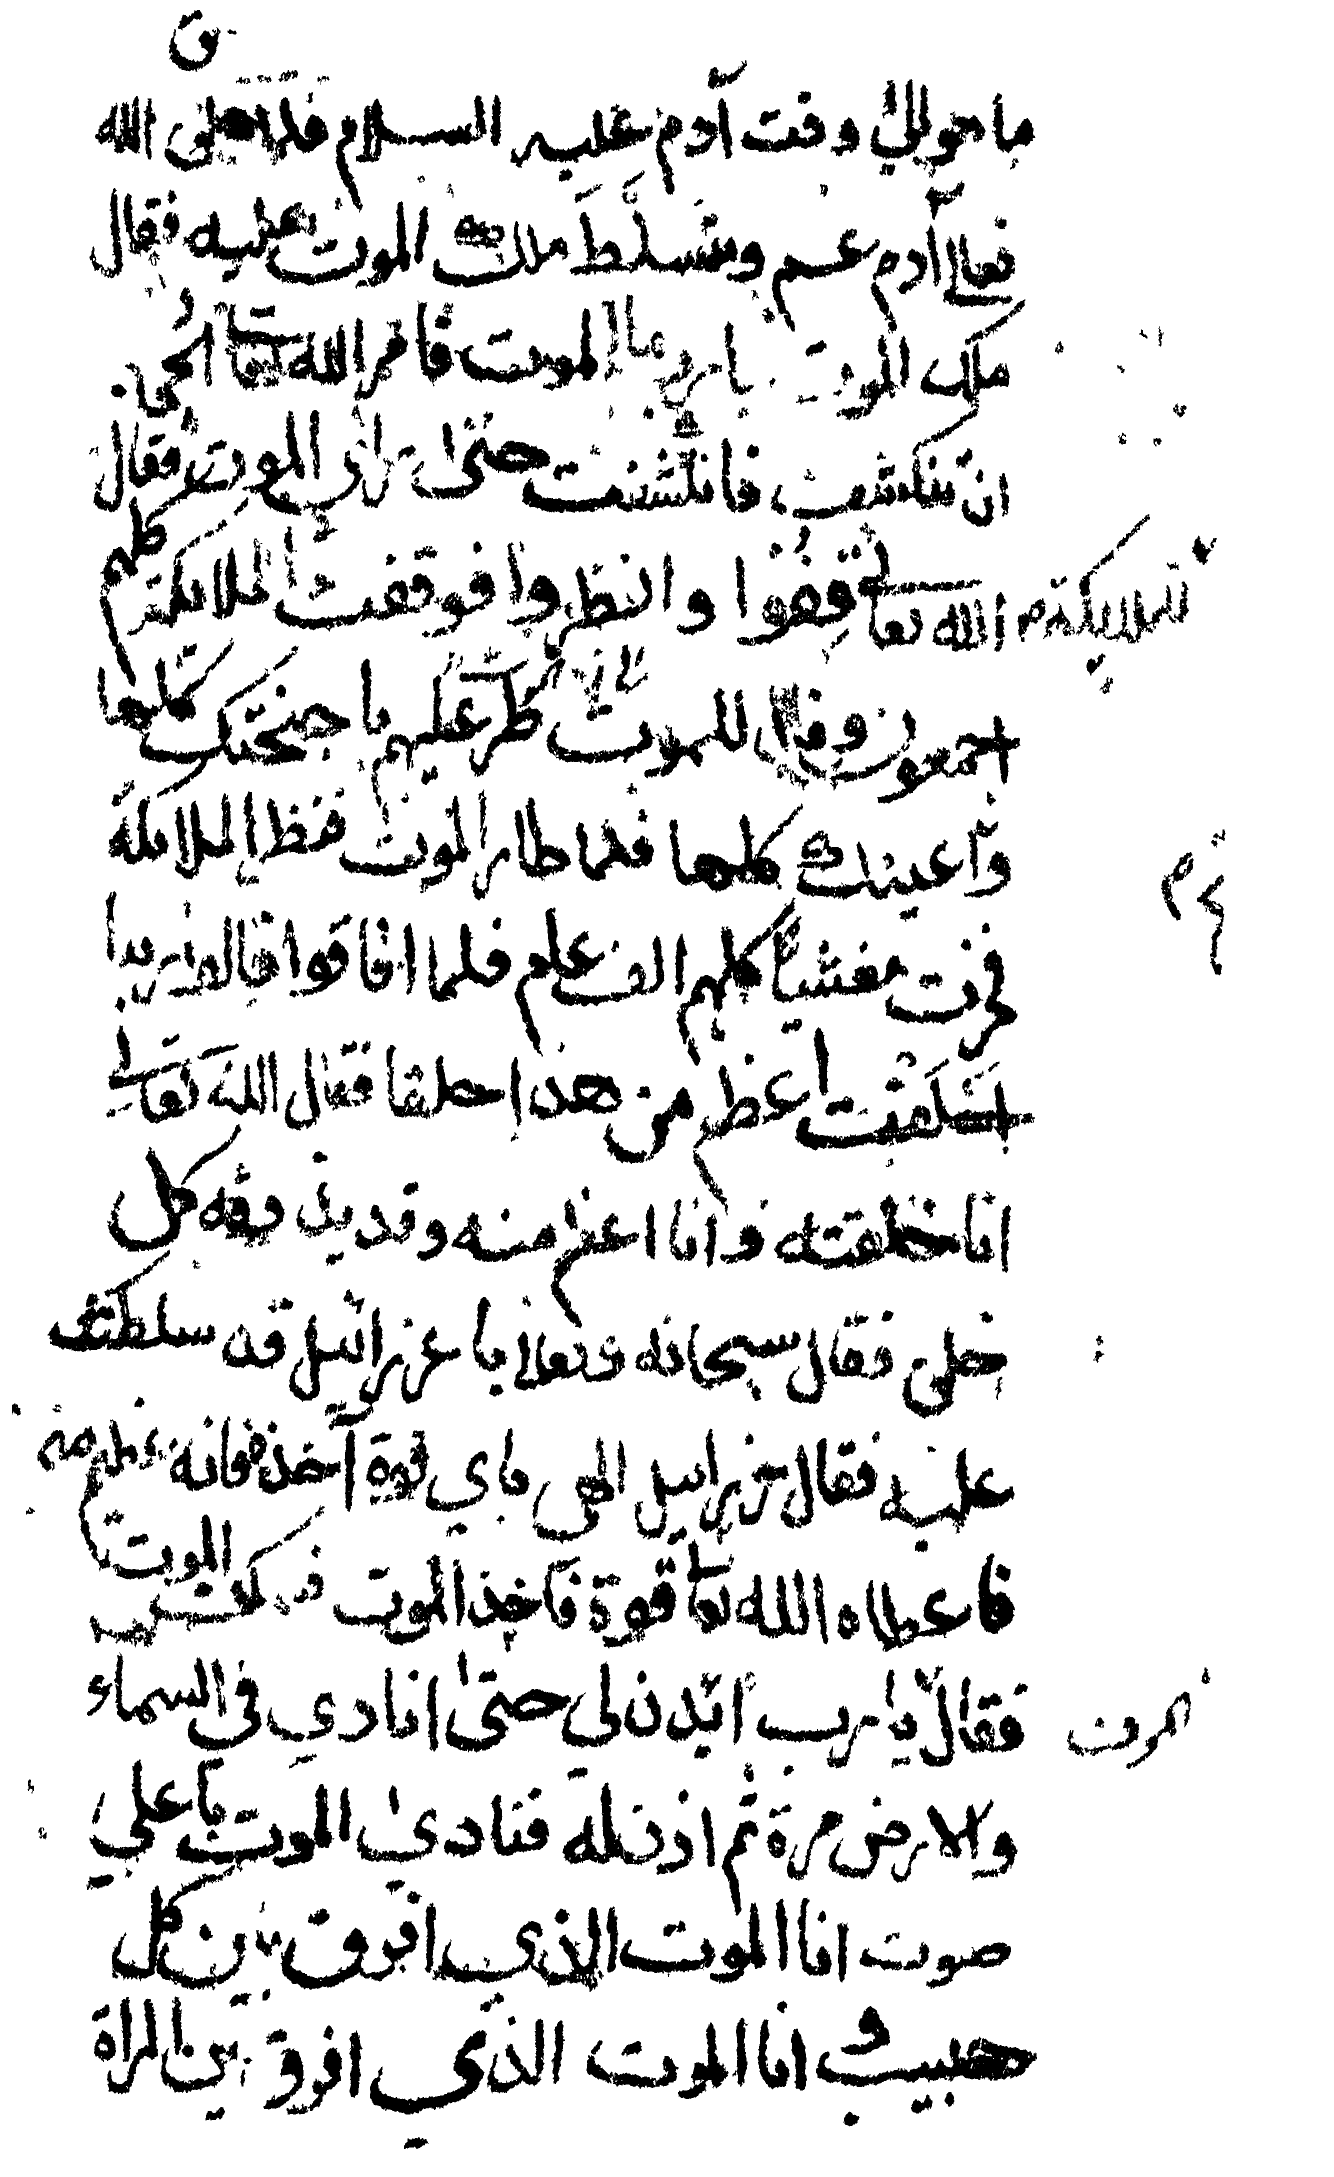 ق
ما هو الى وقت آدم عليه السلام فلما خلق الله
تعالى آدم عم وسلط ملك الموت عليه فقال
ملك الموت يا رب ما الموت فامر الله تعا الحجاب
ان تنكشف فانكشفت حتى راى الموت فقال
للملايكة م الله تعالى قفوا وانظروا فوقفت الملايكة كلهم
اجمعون وقال للموت طر عليهم باجنحتك كلها
واعينك كلها فلما طار الموت فنظر الملايكة
فخرت مغشيا كلهم الف علم فلما افاقوا قالوا ربنا
اخلقت اعظم من هذا خلقا فقال الله تعالى
انا خلقته وانا اعظم منه وقد يذوقه كل
خلق فقال سبحانه وتعالى يا عزرائيل قد سلطتك
عليه فقال عزرائيل الهى باي قوة آخذه فانه عظيم منه
فاعطاه الله تعالى قوة فاخذ الموت فسكت الموت
فقال يا رب ائذن لي حتى انادي في السماء
الموت
والارض مرة ثم اذن له فنادى الموت باعلي
صوت انا الموت الذي افرق بين كل
حبيب و انا الموت الذي افرق بين المراة